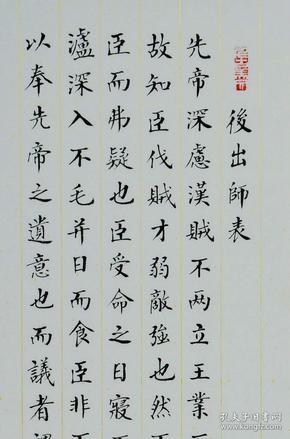 後出師表
先帝深慮漢賊不两立王業
故知臣伐賊才弱敵強也然
臣而弗疑也臣受命之日寢
瀘深入不毛并日而食臣非
以奉先帝之遺意也而議者